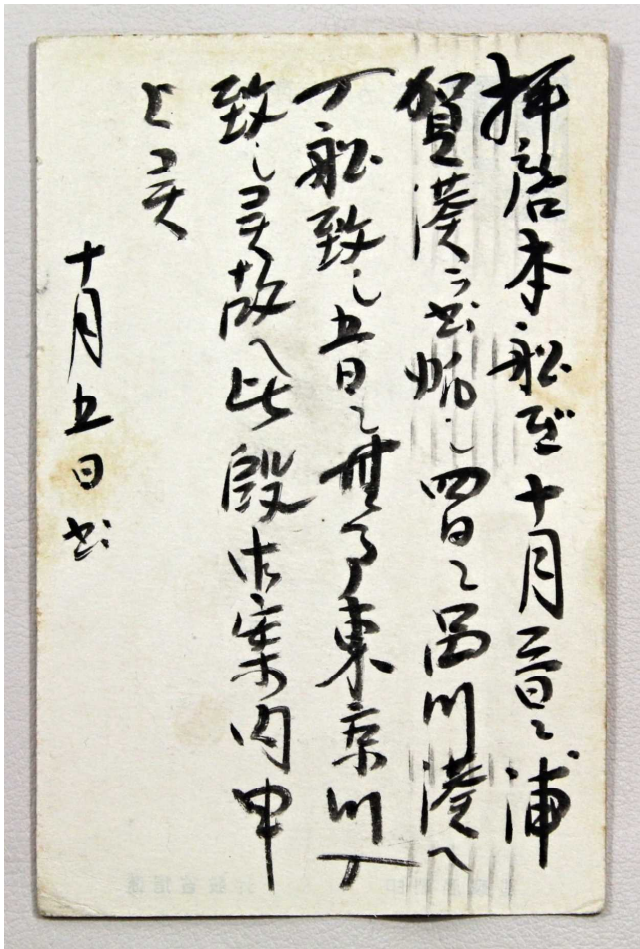 拝啓本船ぜ十月三日ニ浦
賀湊ラ出帆シ四日ニ品川湊へ
入船致シ五日ニ無事東京川入
致シ候故へ此段御案内申
上候
十月五日出